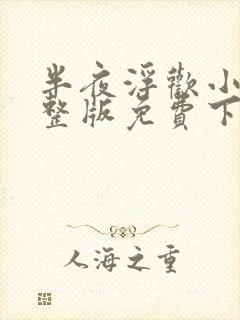 半夜浮歡小
整版免費下
人海之重